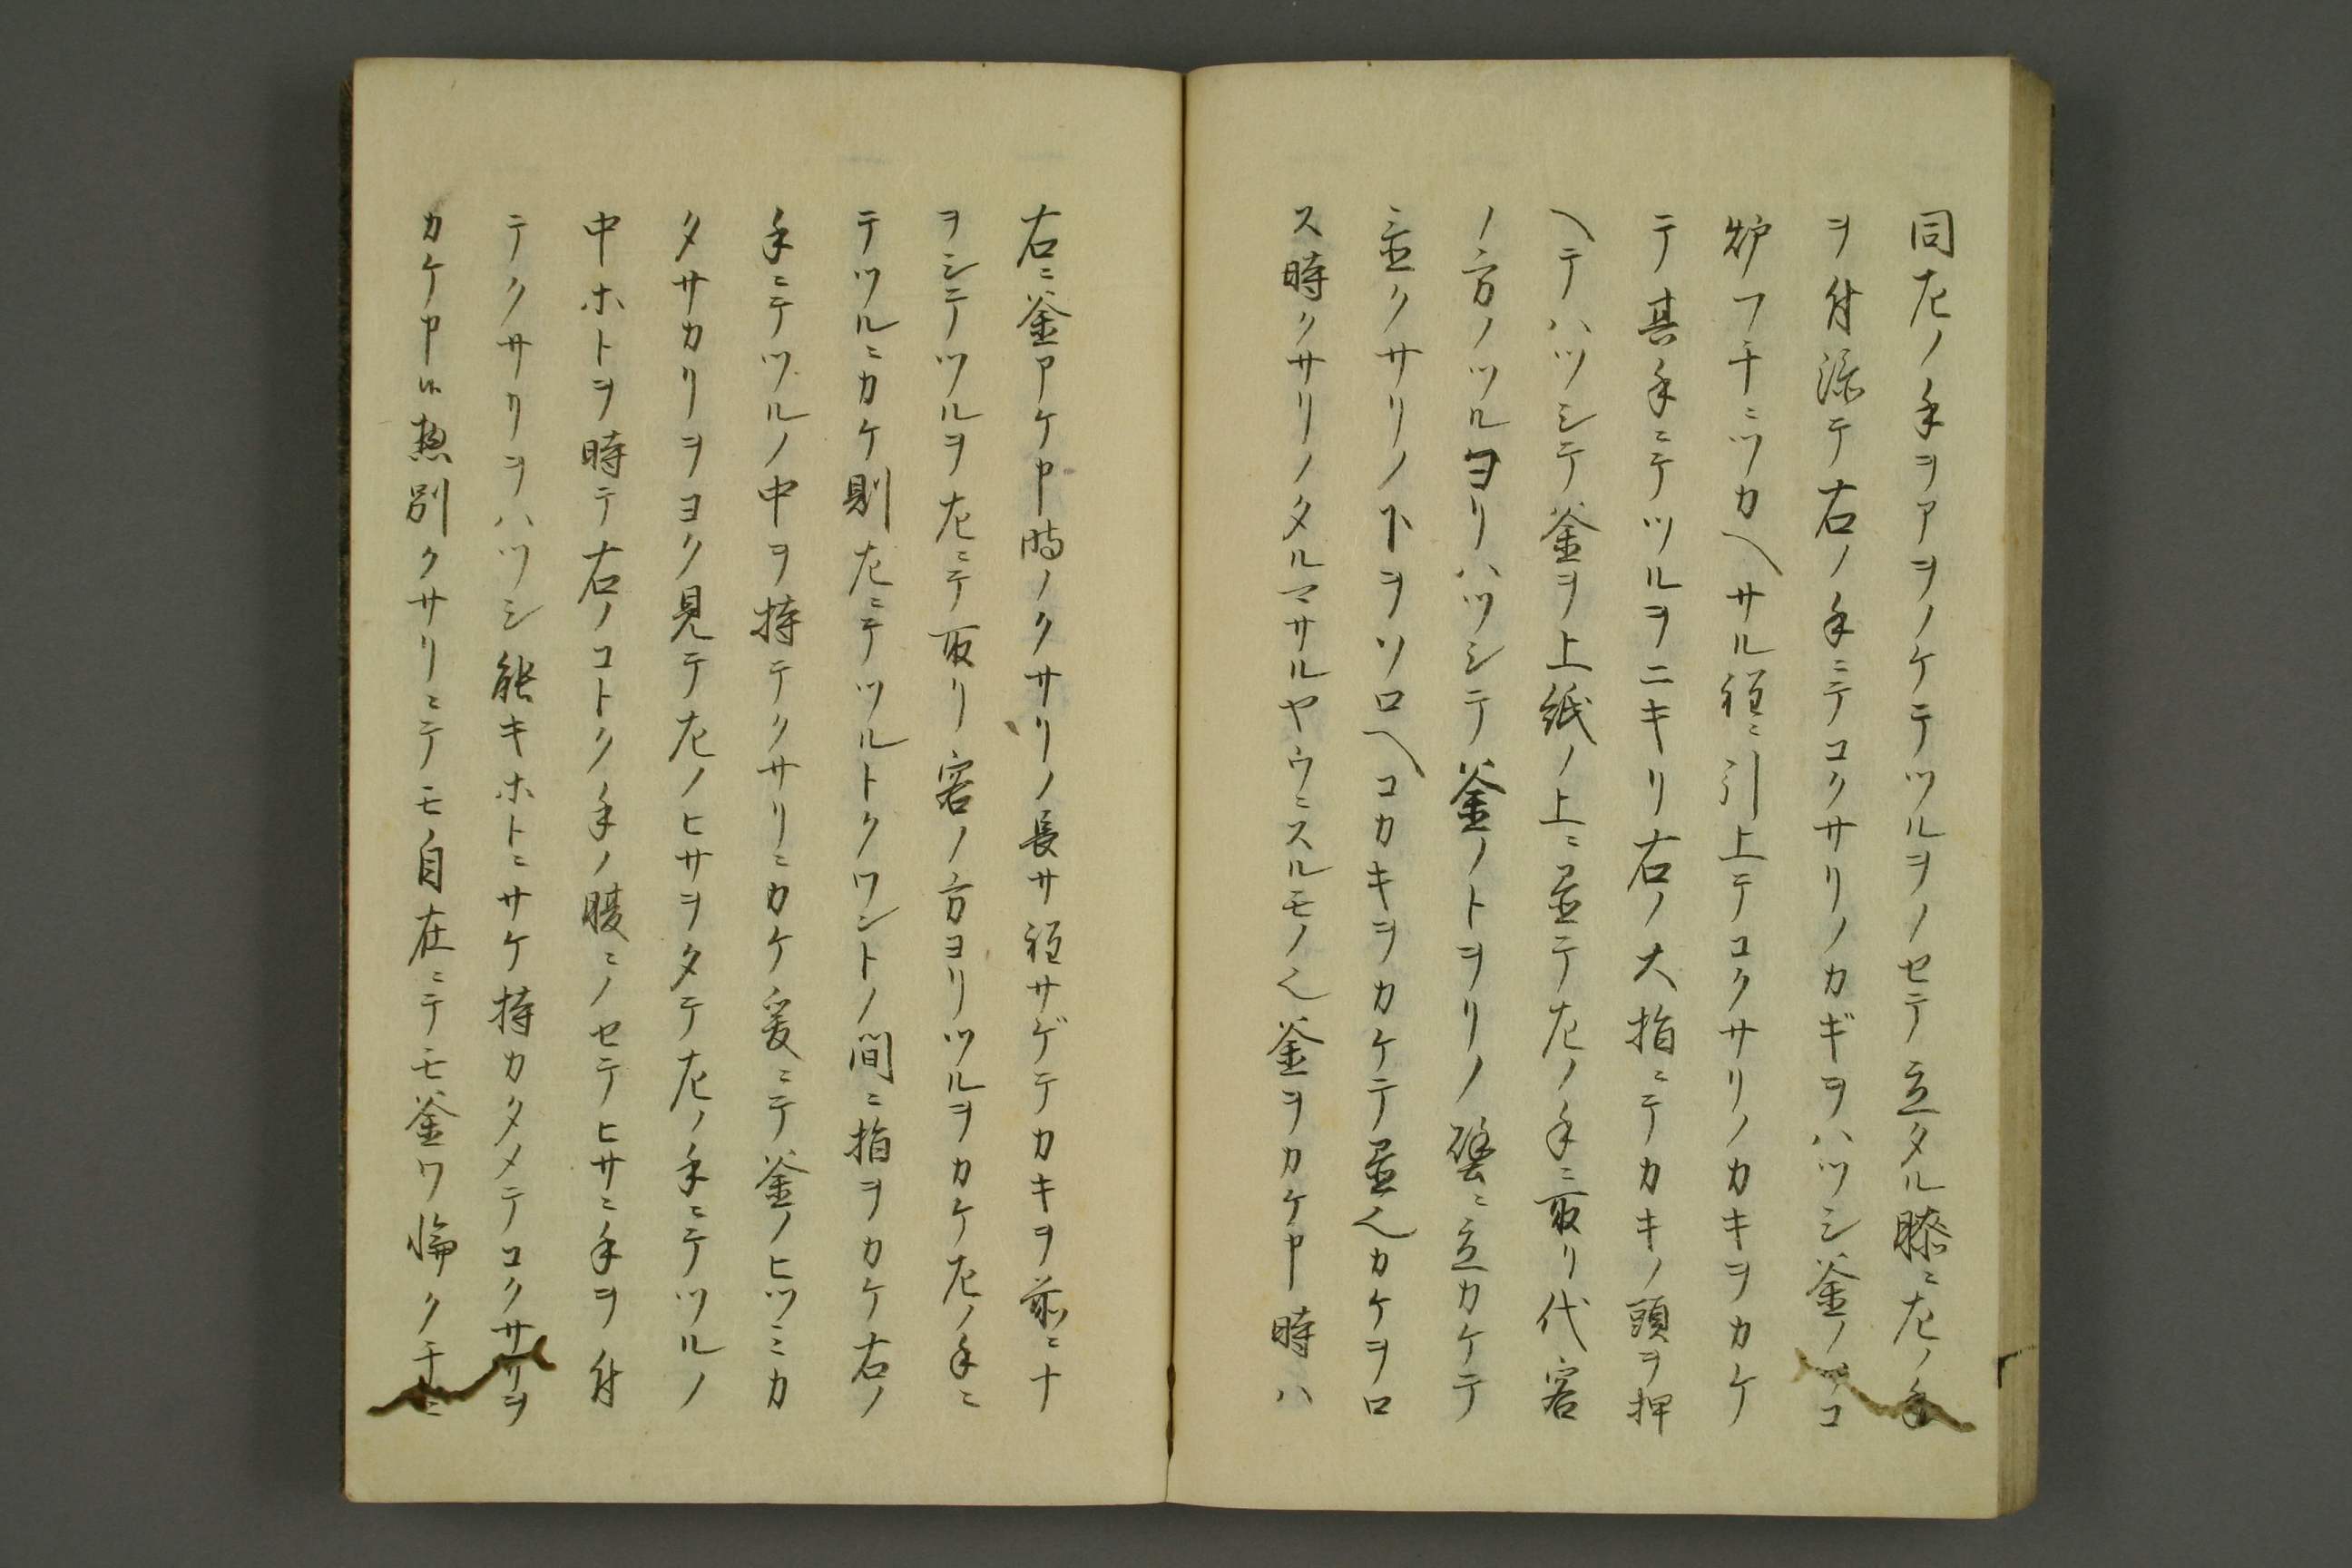 同左ノ手ヲアヲノケテツルヲノセテ立タル膝ニ左ノ手
ヲ付添テ右ノ手ニテコクサリノカギヲハツシ釜ノソコ
炉フチニツカヘサル程ニ引上テコクサリノカキヲカケ
テ其手ニテツルヲニキリ右ノ大指ニテカキノ頭ヲ押
ヘテハツシテ釜ヲ上紙ノ上ニ置テ左ノ手ニ取リ代客
ノ方ノツルヨリハツシテ釜ノトヲリノ壁ニ立カケテ
置クサリノ下ヲソロヘコカキヲカケテ置也カケヲロ
ス時クサリノタルマサルヤウニスルモノ也釜ヲカケ申時ハ
右ニ釜アケ申時ノクサリノ長サ程サゲテカキヲ前ニナ
ヲシテツルヲ左ニテ取リ客ノ方ヨリツルヲカケ左ノ手ニ
テツルニカケ則左ニテツルトクワントノ間ニ指ヲカケ右ノ
手ニテツルノ中ヲ持テクサリニカケ爰ニテ釜ノヒツミカ
タサカリヲヨク見テ左ノヒサヲタテ左ノ手ニテツルノ
中ホトヲ時テ右ノコトク手ノ腹ニノセテヒサニ手ヲ付
テクサリヲハツシ能キホトニサケ持カタメテコクサリヲ
カケ申候惣別クサリニテモ自在ニテモ釜ワ惀クチニ